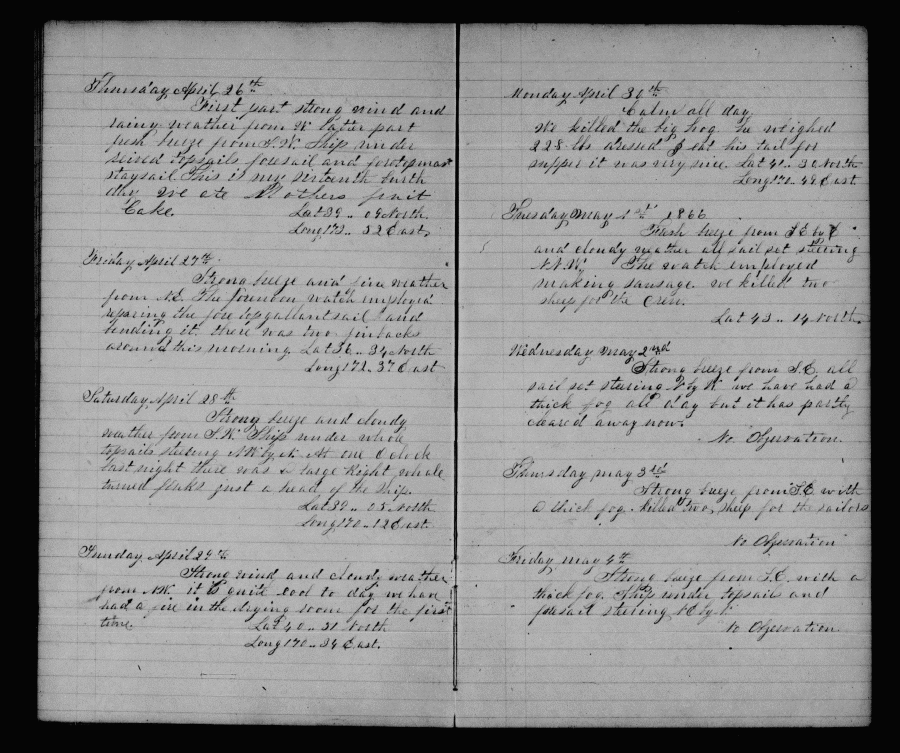 Thursday April 26th
First part strong wind and
rainy weather from W latter part
fresh breeze from S.W. Ship under
reized topsails foresail and foretopmast
staysail This is my sixteenth birth
day we ate Mothers fruit
Cake. Lat 39 .. 09 North
Long 172 .. 52 East.
Friday April 27th
Strong breeze and fine weather
from N.E. The forenoon watch employed
reparing the fore topgallantsail and
bending it. there was two finbacks
around this morning. Lat 36 .. 34 North
Long 172 .. 37 East
Saturday April 28th
Strong breeze and cloudy
weather from S.W. Ship under whole
topsails steering N.W. by N. At one O clock
last night there was a large Right whale
turned flukes just a head of the ship.
Lat 39 .. 05 North
Long 170 .. 12 East.
Sunday April 29th
Strong wind and cloudy weather
from N.W. it is quite cool to day we have
had a fire in the dining room for the first
time Lat 40 .. 31 North
Long 170 .. 34 East.
Monday April 30th
Calm all day
We killed the big hog he weighed
228 lbs dressed eat his tail for
supper it was very nice Lat 41 .. 30 North
Long 170 .. 49 East
Tuesday May 1st 1866
Fresh breeze from S E by E
and cloudy weather all sail set steering
N.N.W. The watch employed
making sausage we killed two
sheep for the Crew.
Lat 43 .. 14 North.
Wednesday May 2nd
Strong breeze from S.E. all
sail set staring N by W we have had a
thick fog all day but it has partly
cleared away now.
No Obzervation.
Thursday may 3rd
Strong breeze from S.E. with
a thick fog. killed two sheep for the sailors
No Obzervation
Friday may 4th
Strong breeze from S.E. with a
thick fog. Ship under topsails and
foresail steering N.E. by N.
No Obzervation